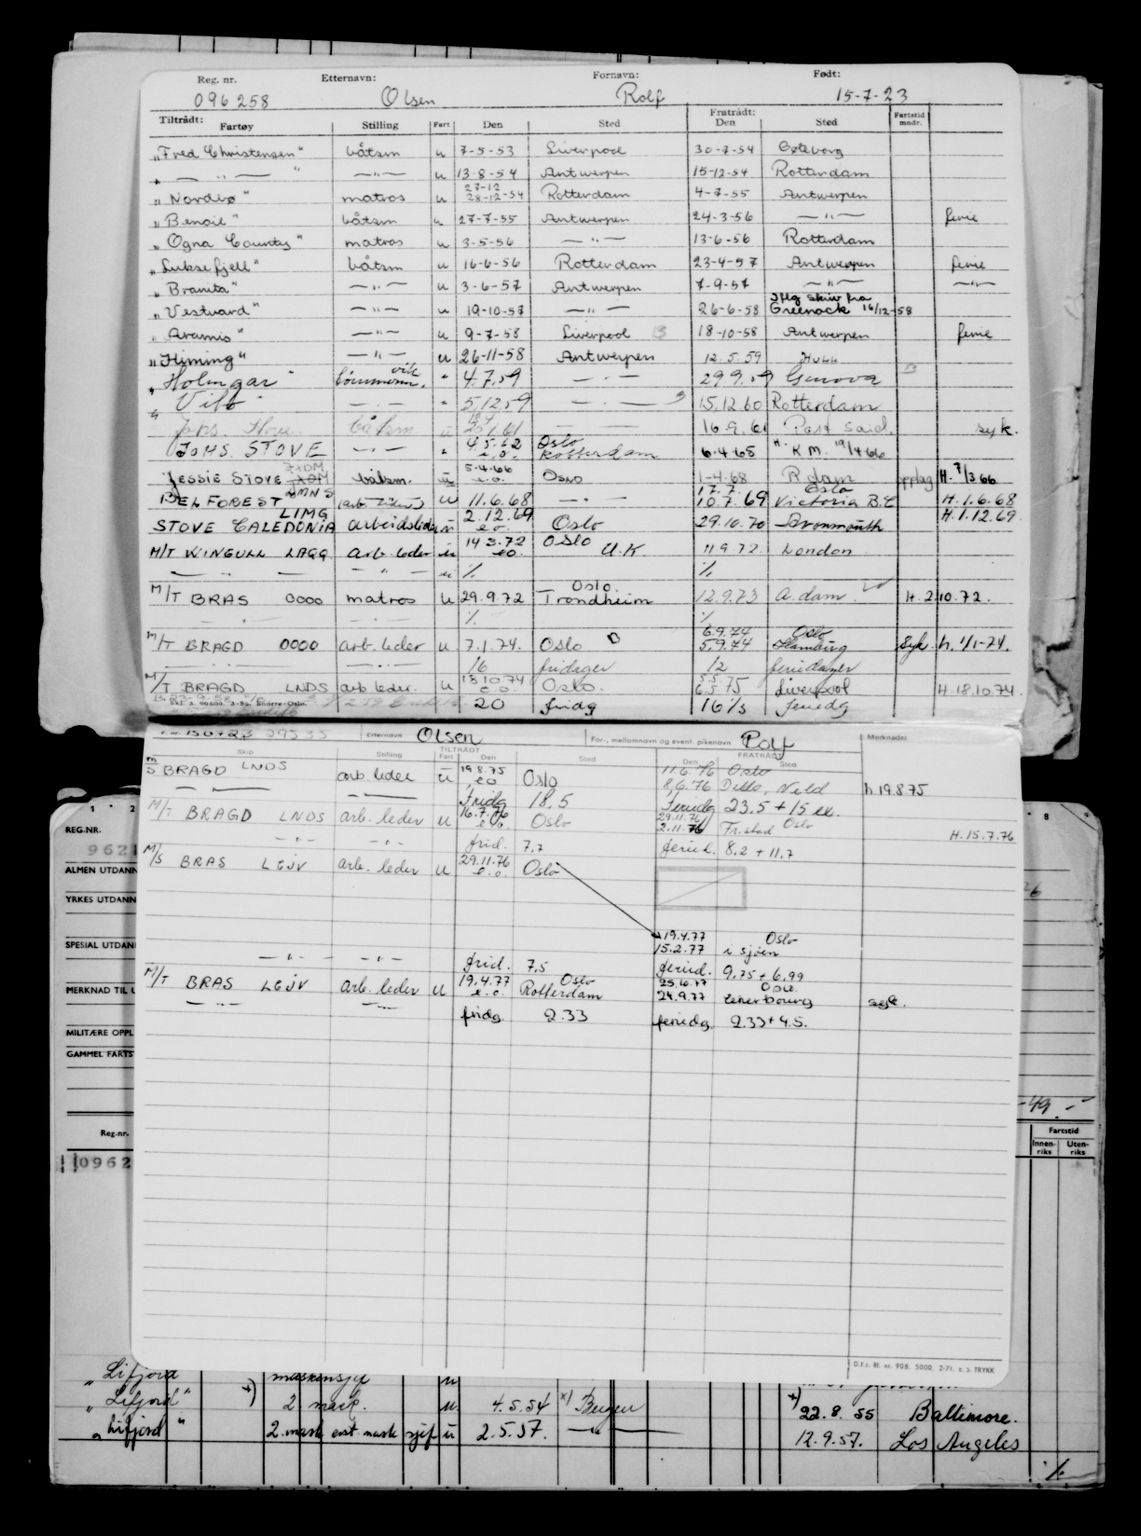 Reg. nr. Etternavn: Fornavn: Født:
096258 Olsen Rolf 15-7-23
Tiltrådt: Fratrådt: Fartstid
Fartøy Stilling Fart Den Sted Den Sted mndr.
"Fred Christensen" båtsm u 7-5-53 Liverpool 30-7-54 Gøteborg
" — " — " — " — u 13-8-54 Antwerpen 15-12-54 Rotterdam
27-12
"Norderø" matros u 28-12-54 Rotterdam 4-7-55 Antwerpen
"Benoil" båtsm u 27-7-55 Antwerpen 24-3-56 — " — ferie
"Ogna County" matros u 3-5-56 — " — 13-6-56 Rotterdam
"Luksefjell" båtsm u 16-6-56 Rotterdam 23-4-57 Antwerpen ferie
"Branita" — " — u 3-6-57 Antwerpen 7-9-57 — " — — " —
Iflg skriv fra
"Vestvard" — " — u 19-10-57 — " — 26-6-58 Greenock 16/12-58
"Aramis" — " — u 9-7-58 Liverpool B 18-10-58 Antwerpen ferie
"Himing" — " — u 26-11-58 Antwerpen 12.5.59 Hull
"Holmgar" " 4.7.59 — " — 29.9.59 Genova
" — . — " 5.12.59 — . — 15.12.60 Rotterdam
Johs. Stove båtsm u 16.9.61 Port Said. syk.
JOHS. STOVE — " — " 4.5.62 Oslo
e.o. Rotterdam 6.4.65 K.M. 19/4-66
JESSIE STOVE båtsm. u 5.4.66 e.o. OSLO 1-4-68 R.dam opplag H. 7/3.66
17.7. Oslo
BELFOREST u 11.6.68 — " — 10.7.69 Victoria B.C H.1.6.68
LIMG 2.12.69 H.1.12.69.
STOVE CALEDONIA arbeidsleder u e.o. Oslo 29.10.70 Avonmouth
M/T WINGULL LAGG. arb. leder u 14.3.72 e.o. OSLO U.K. 11.9.72 London
— " — — " — u ./. ./.
Oslo.
M/T BRAS 0000 matros u 29.9.72 Trondheim 12.9.73 A.dam. H. 2.10.72.
— " — ./. ./.
6.9.74 Oslo
M/T BRAGD 0000 arb. leder u 7.1.74. Oslo 5.9.74 Hamburg Syk. h. 1/1-74.
— " — — " — 16 fridager 12 feriedager
18.10.74 5.5.
M/T BRAGD LNDS arb leder. u e.o. Oslo. 6.5.75 Liverpool H.18.10.74.
20 fridg 16⅓ feriedg
150723 29535 Etternavn Olsen For-, mellomnavn og event. pikenavn Rolf Merknader
TILTRÅDT FRATRÅDT
Skip Stilling Fart Den Sted Den Sted
19.8.75 11.6.76 Oslo
M/S BRAGD LNDS arb. leder u e.o Oslo 8.6.76 h.19875
— " — — " — Fridg 18.5 Feriedg 23.5 + 15 ex.
16.7.76 29.11.76 Oslo
M/T BRAGD LNDS arb. leder u e.o. Oslo 2.11.76 Fr.stad H.15.7.76
— " — — " — frid. 7,7 feried. 8.2 + 11,7
29.11.76
M/S BRAS LGJV arb. leder u e.o. Oslo
19.4.77 Oslo
15.2.77 i sjøen
— " — — " — frid. 7,5 feried. 9,75 + 6,99
19.4.77 Oslo Oslo
M/T BRAS LGJV arb. leder u e.o. Rotterdam 24.9.77 Cherbourg syk.
— " — — " — fridg. 2.33 feriedg. 2.33 + 4.5.
D.f.s. Bl. nr. 908. 5000. 2-71. E. S. TRYKK
REG.NR.
9621
ALMEN UTDANN
YRKES UTDANN
SPESIAL UTDAN
MERKNAD TIL U
MILITÆRE OPPL
GAMMEL FARTS
-49.-
Reg-nr. Fartstid
Innen-riks Uten-riks
0962
"Lifjord u
"Lifjord" +) 2 mask. u 4.5.54 x) Bergen +) 22.8.55 Baltimore.
"Lifjord" 2.mask est. mask sjef u 2.5.57. — " — 12.9.57. Los Angeles
./.